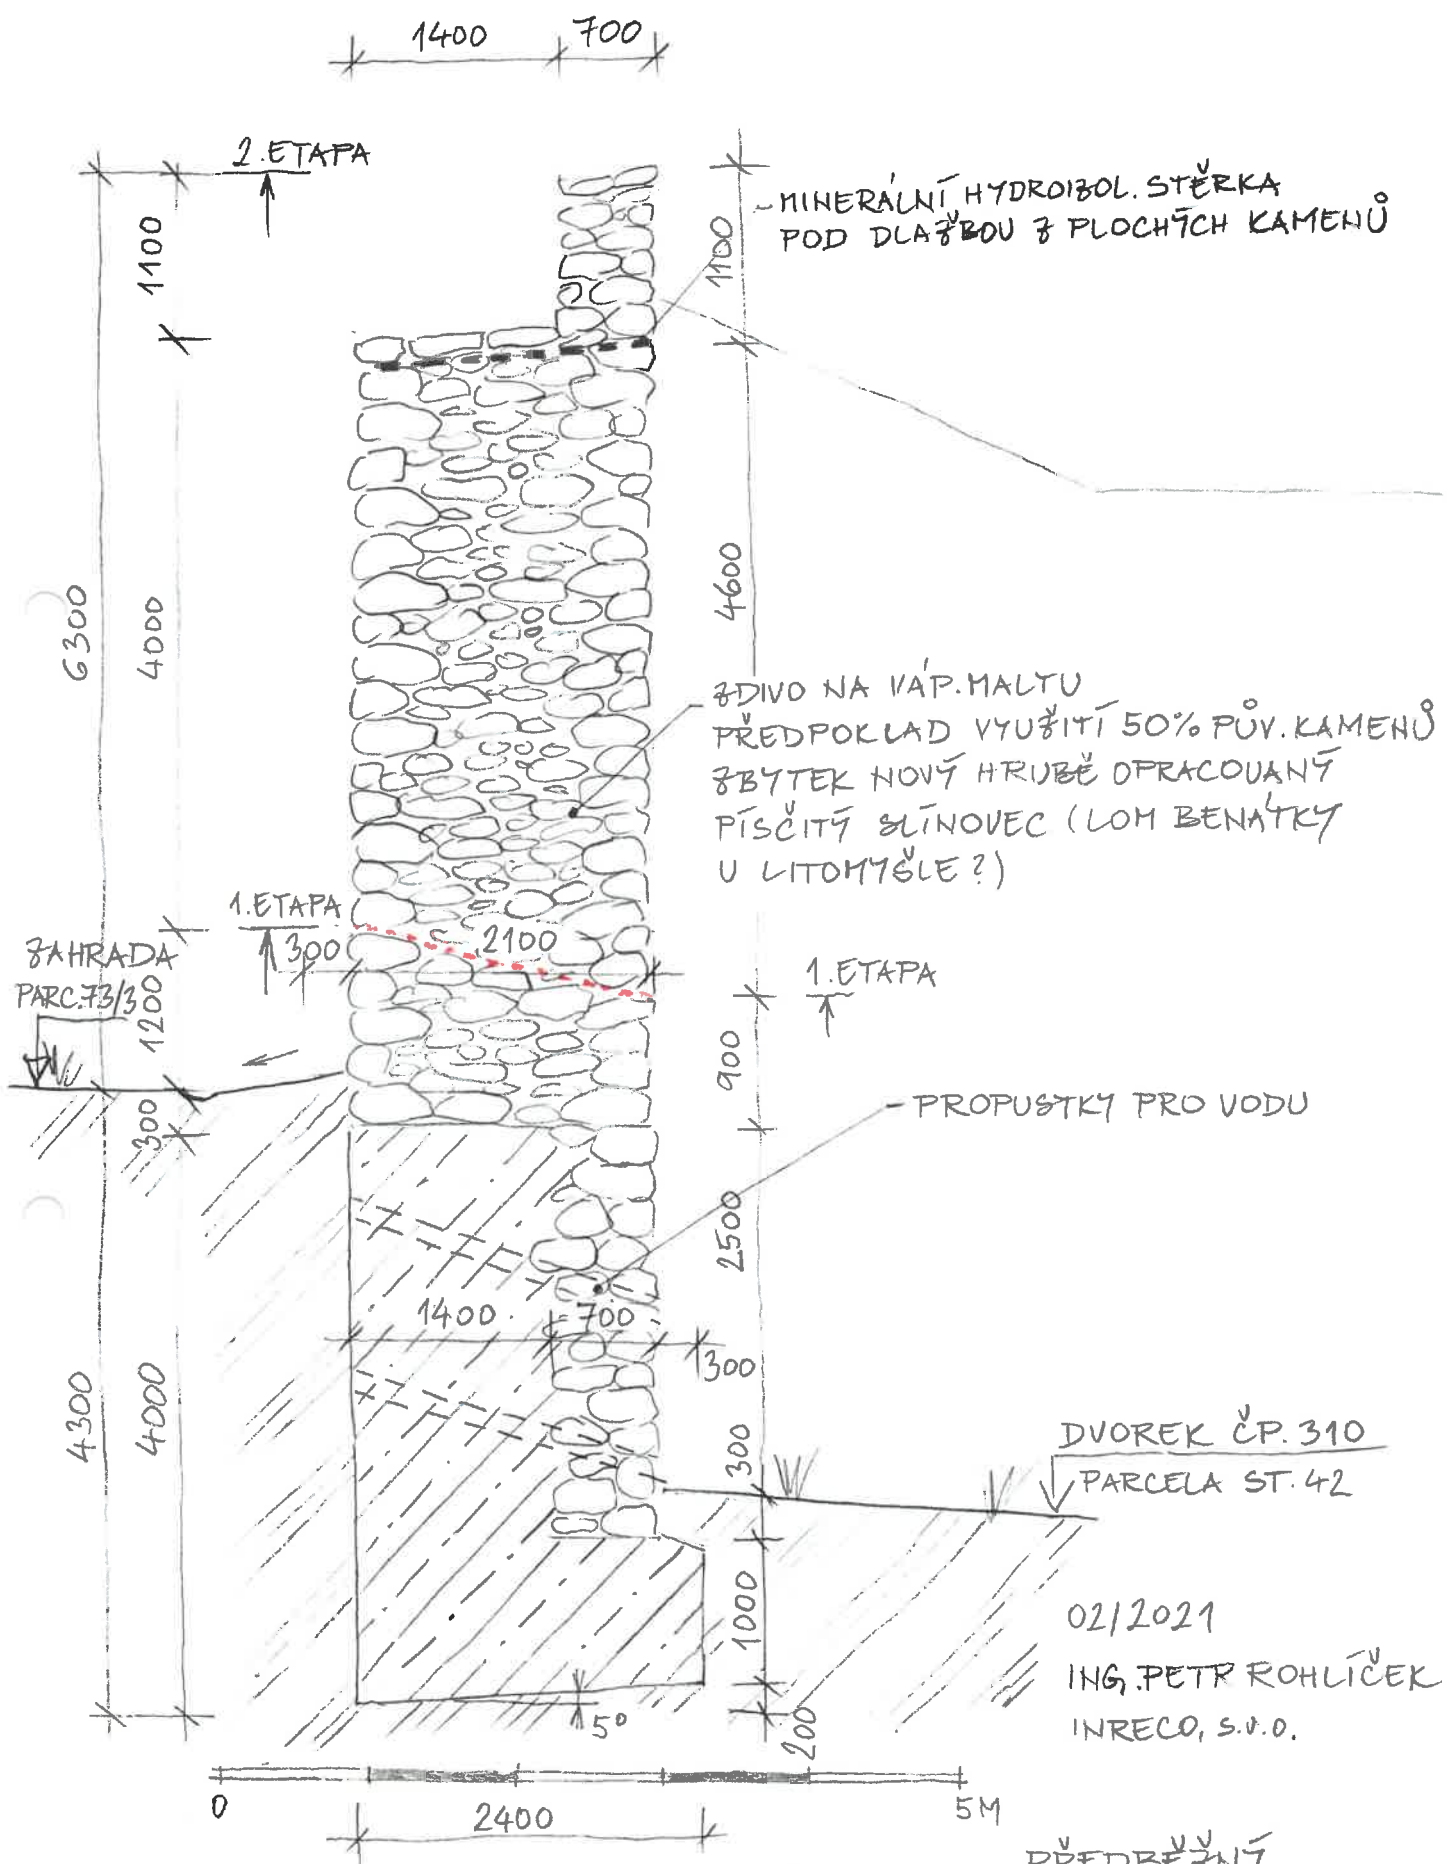 1400
700
2.ETAPA
1100
1100
- MINERÁLNÍ HYDROIZOL. STĚRKA
POD DLAŽBOU Z PLOCHÝCH KAMENŮ
6300
4000
4600
ZDIVO NA VÁP. MALTU
PŘEDPOKLAD VYUŽITÍ 50% PŮV. KAMENŮ
ZBYTEK NOVÝ HRUBĚ OPRACOVANÝ
PÍSČITÝ SLÍNOVEC (LOM BENÁTKY
U LITOMYŠLE?)
1.ETAPA
300
2100
ZAHRADA
PARC.73/3
1200
1.ETAPA
900
300
- PROPUSTKY PRO VODU
2500
1400
700
300
4300
4000
300
DVOREK ČP. 310
PARCELA ST. 42
1000
02/2021
ING. PETR ROHLÍČEK
INRECO, s.r.o.
5°
200
0
5M
2400
PŘEDBĚŽNÝ